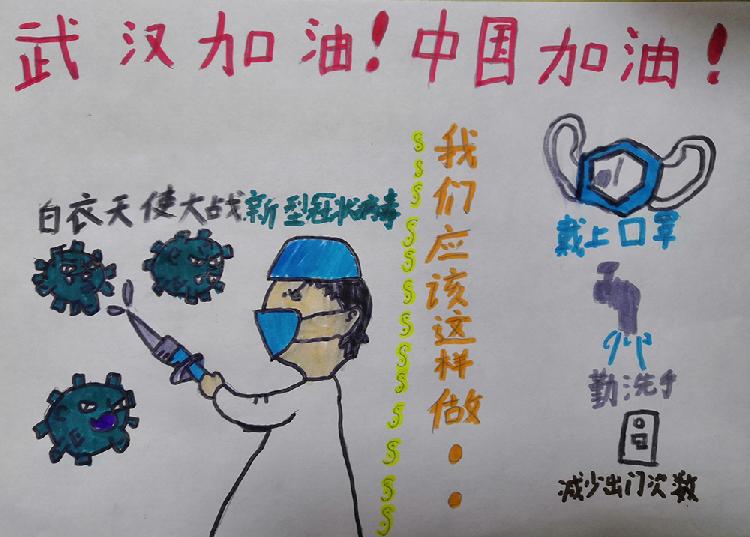 武汉加油!中国加油!
白衣天使大战新型冠状病毒
我们应该这样做..
戴上口罩
勤洗手
减少出门次数